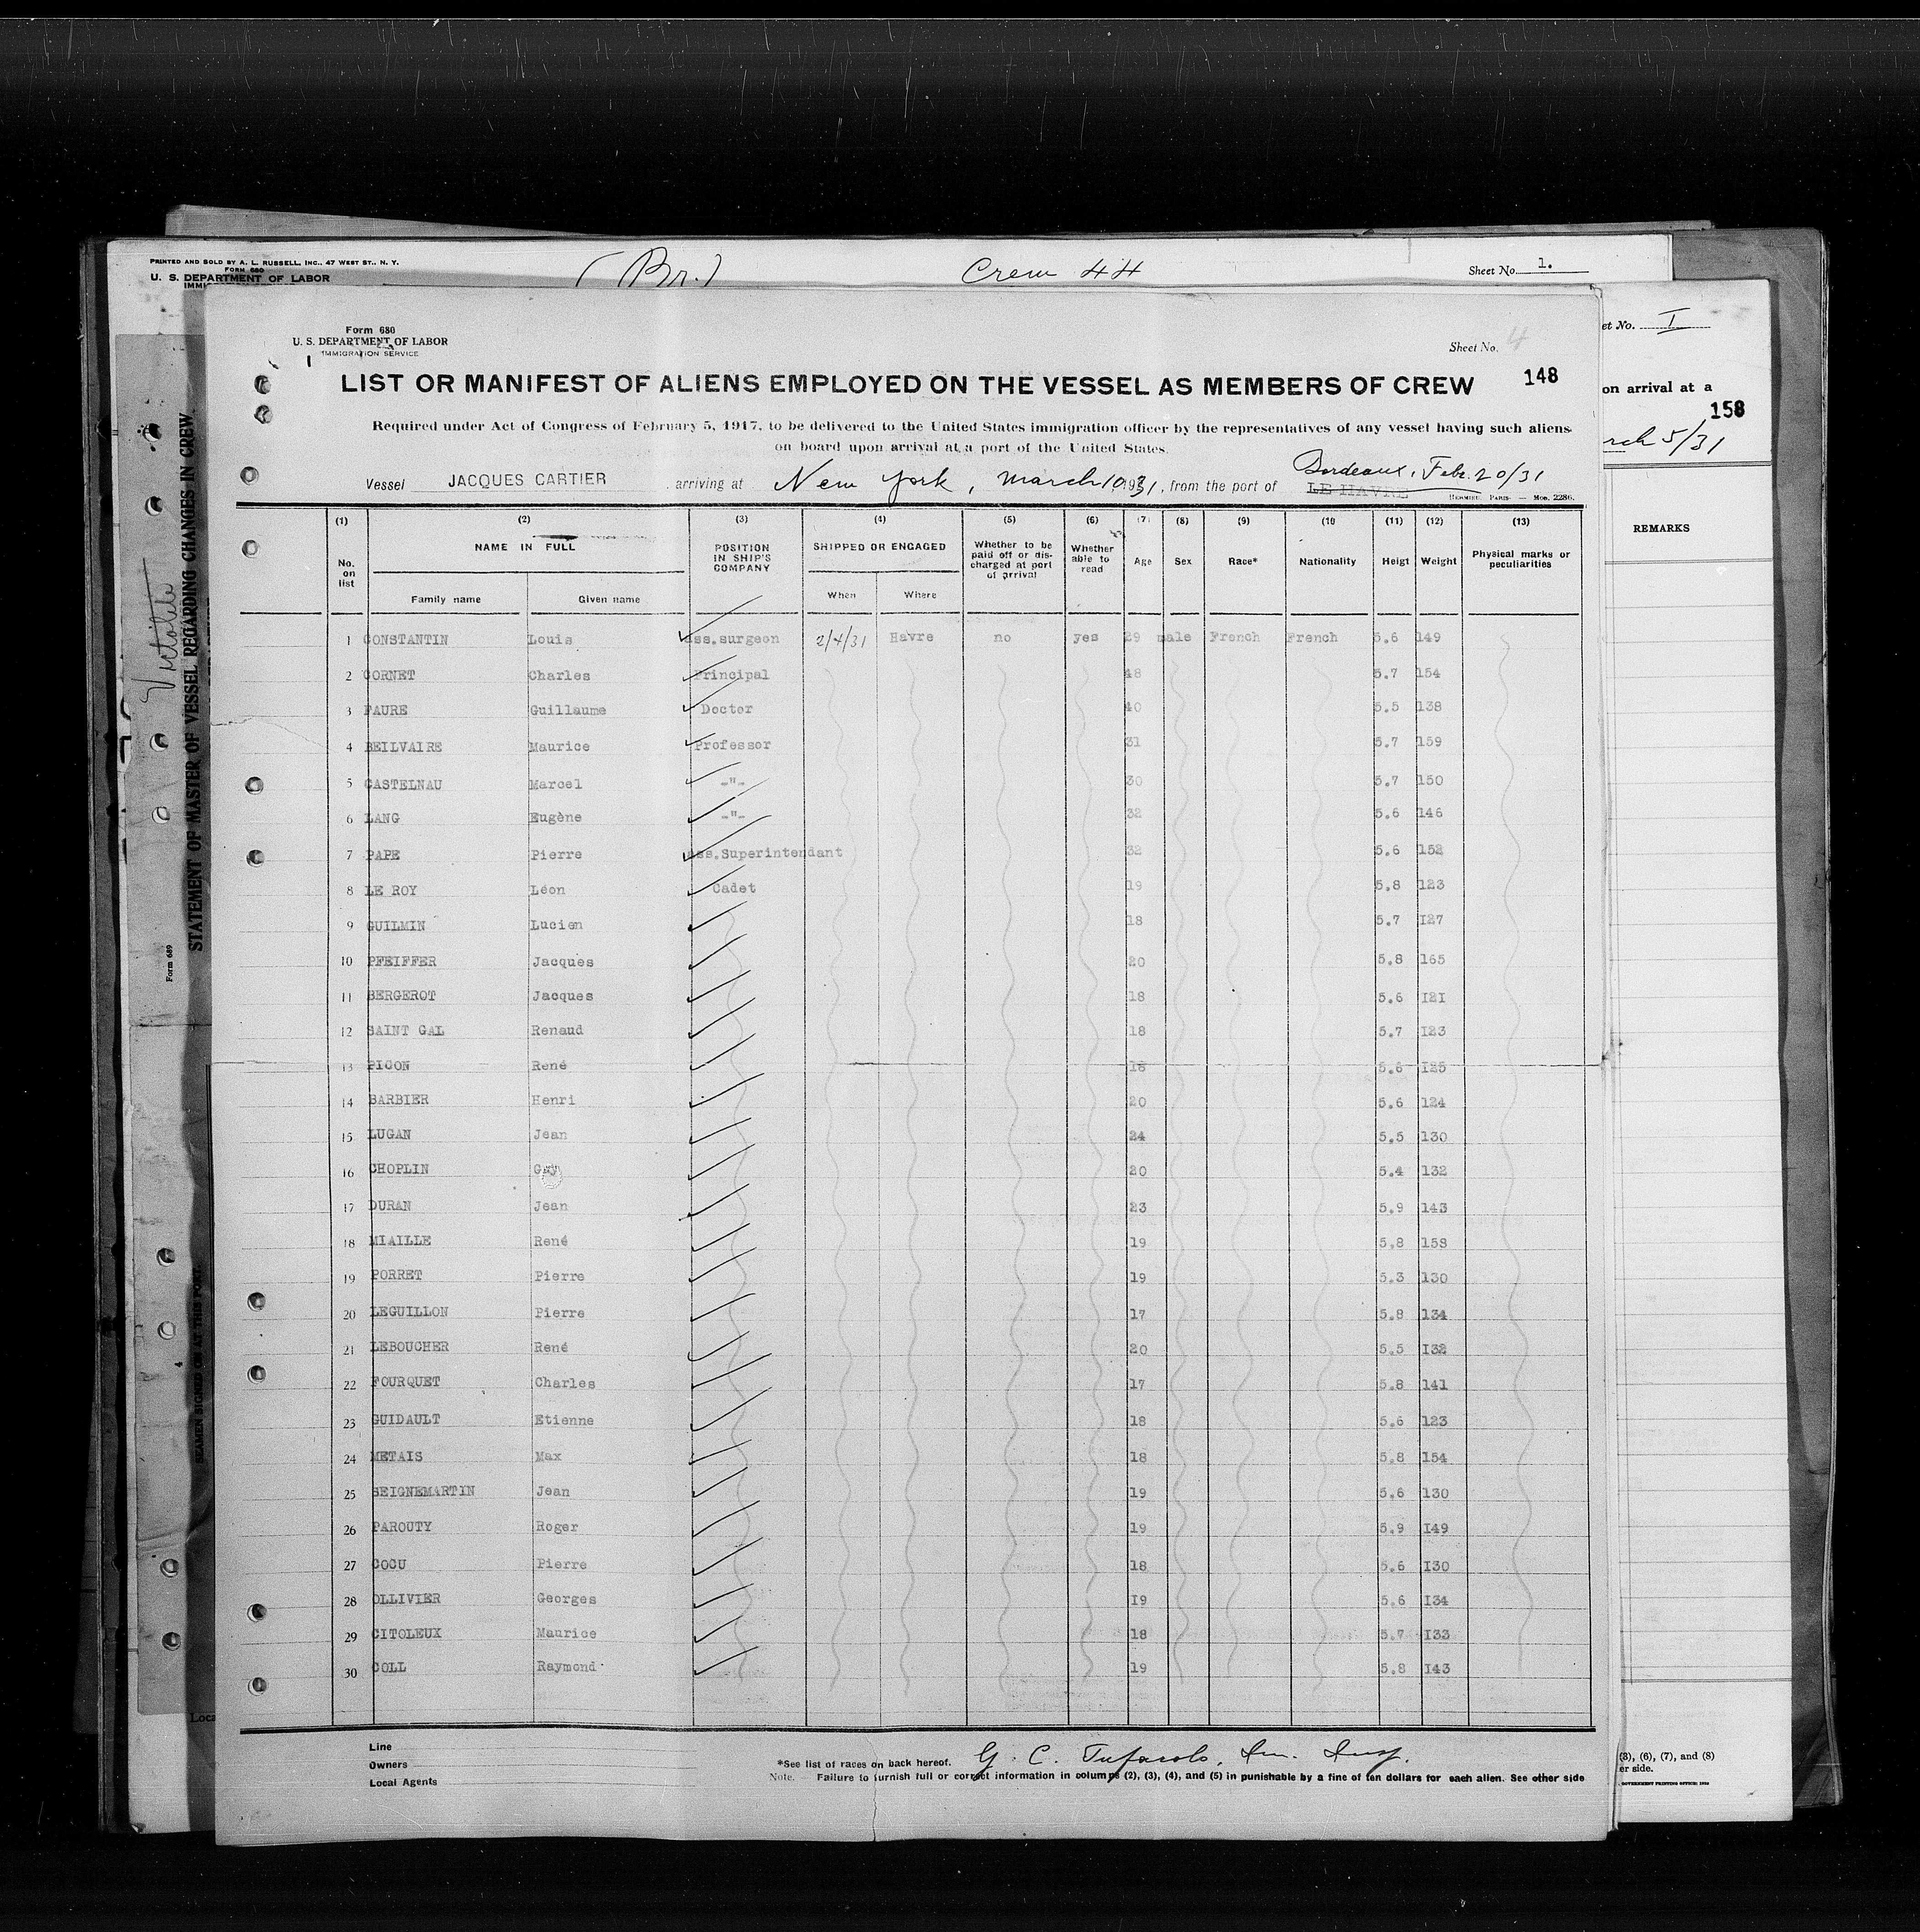 PRINTED AND SOLD BY A. L. RUSSELL, INC., 47 WEST ST., N. Y.
FORM 680
U. S. DEPARTMENT OF LABOR
(Br.)
Crew 44
Sheet No. 1.
Form 680
U. S. DEPARTMENT OF LABOR
IMMIGRATION SERVICE
Sheet No. 4
148
LIST OR MANIFEST OF ALIENS EMPLOYED ON THE VESSEL AS MEMBERS OF CREW
Required under Act of Congress of February 5, 1917, to be delivered to the United States immigration officer by the representatives of any vessel having such aliens
on board upon arrival at a port of the United States.
Vessel JACQUES CARTIER arriving at New York, March 10, 1931, from the port of LE HAVRE Bordeaux, Feb. 20/31
HERMIEU, PARIS — Mod. 2286.
(1) (2) (3) (4) (5) (6) (7) (8) (9) (10 (11) (12) (13)
No. on list NAME IN FULL POSITION IN SHIP'S COMPANY SHIPPED OR ENGAGED Whether to be paid off or discharged at port of arrival Whether able to read Age Sex Race* Nationality Heigt Weight Physical marks or peculiarities
Family name Given name When Where
1 CONSTANTIN Louis ass.surgeon 2/4/31 Havre no yes 29 male French French 5.6 149
2 CORNET Charles Principal 48 5.7 154
3 FAURE Guillaume Doctor 40 5.5 138
4 BEILVAIRE Maurice Professor 31 5.7 159
5 CASTELNAU Marcel -"- 30 5.7 150
6 LANG Eugène -"- 32 5.6 146
7 PAPE Pierre ass.Superintendant 32 5.6 152
8 LE ROY Léon Cadet 19 5.8 123
9 GUILMIN Lucien 18 5.7 I27
10 PFEIFFER Jacques 20 5.8 165
11 BERGEROT Jacques 18 5.6 I2I
12 SAINT GAL Renaud 18 5.7 I23
13 PICON René 5.6 I25
14 BARBIER Henri 20 5.6 124
15 LUGAN Jean 24 5.5 130
16 CHOPLIN Guy 20 5.4 132
17 DURAN Jean 23 5.9 143
18 MIAILLE René 19 5.8 158
19 PORRET Pierre 19 5.3 130
20 LEGUILLON Pierre 17 5.8 134
21 LEBOUCHER René 20 5.5 I32
22 FOURQUET Charles 17 5.8 141
23 GUIDAULT Etienne 18 5.6 123
24 METAIS Max 18 5.8 154
25 SEIGNEMARTIN Jean 19 5.6 130
26 PAROUTY Roger 19 5.9 I49
27 COCU Pierre 18 5.6 I30
28 OLLIVIER Georges I9 5.6 I34
29 CITOLEUX Maurice 18 5.7 I33
30 COLL Raymond 19 5.8 I43
Line
Owners
Local Agents
*See list of races on back hereof.
G. C.
Note. — Failure to furnish full or correct information in columns (2), (3), (4), and (5) in punishable by a fine of ten dollars for each alien. See other side
STATEMENT OF MASTER OF VESSEL REGARDING CHANGES IN CREW
Form 689
SEAMEN SIGNED ON AT THIS PORT.
4
et No. I
on arrival at a
158
rch 5/31
REMARKS
(3), (6), (7), and (8)
er side.
GOVERNMENT PRINTING OFFICE: